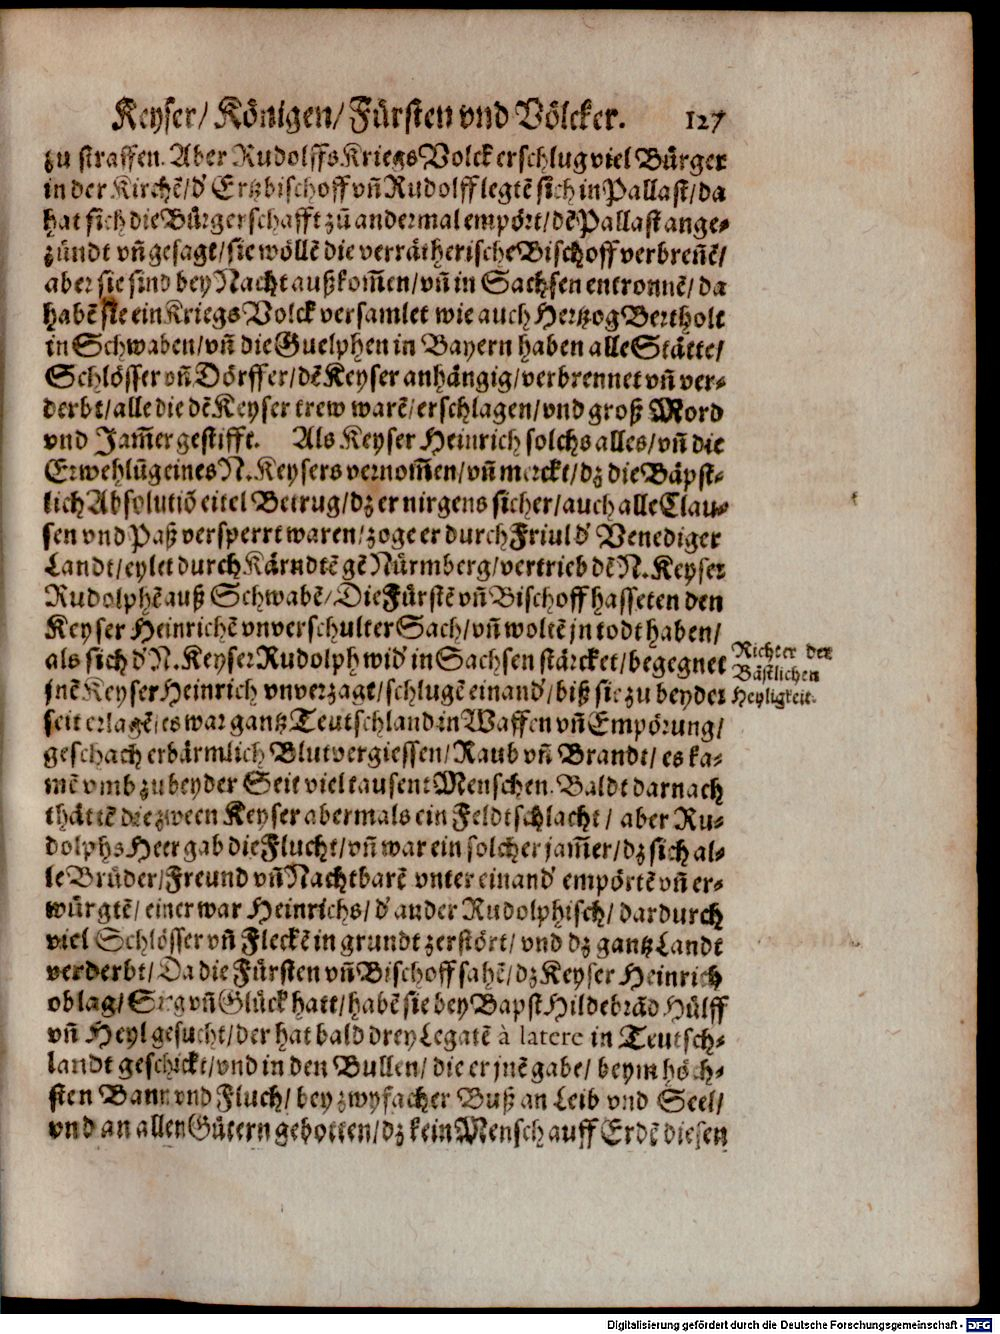 Keyser/ Königen/ Fürsten vnd Völcker. 127
zu straffen. Aber Rudolffs Kriegs Volck erschlug viel Bürger
in der Kirchē/ d' Ertzbischoff vñ Rudolff legtē sich in Pallast/ da
hat sich die Bürgerschafft zū andermal empört/ dē Pallast ange-
zündt vñ gesagt/ sie wöllē die verrätherische Bischoff verbreñē/
aber sie sind bey Nacht außkom̃en/ vñ in Sachsen entronnē/ da
habē sie ein Kriegs Volck versamlet wie auch Hertzog Bertholt
in Schwaben/ vñ die Guelphen in Bayern haben alle Stätte/
Schlösser vñ Dörffer/ dē Keyser anhängig/ verbrennet vñ ver-
derbt/ alle die dē Keyser trew warē/ erschlagen/ vnd groß Mord
vnd Jam̃er gestifft. Als Keyser Heinrich solchs alles/ vñ die
Erwehlūg eines N. Keysers vernom̃en/ vñ merckt/ dz die Bäpst-
lich Absolutiō eitel Betrug/ dz er nirgens sicher/ auch alle Clau-
sen vnd Paß versperrt waren/ zoge er durch Friul d' Venediger
Landt/ eylet durch Kärndtē gē Nürmberg/ vertrieb dē N. Keyser
Rudolphē auß Schwabē/ Die Fürstē vñ Bischoff hasseten den
Keyser Heinrichē vnverschulter Sach/ vñ woltē jn todt haben/
als sich d' N. Keyser Rudolph wid' in Sachsen stärcket/ begegnet
jnē Keyser Heinrich vnverzagt/ schlugē einand'/ biß sie zu beyder
seit erlagē/ es war gantz Teutschland in Waffen vñ Empörung/
geschach erbärmlich Blutvergiessen/ Raub vñ Brandt/ es ka-
mē vmb zu beyder Seit viel tausent Menschen. Baldt darnach
thättē die zween Keyser abermals ein Feldtschlacht/ aber Ru-
dolphs Heer gab die Flucht/ vñ war ein solcher jam̃er/ dz sich al-
le Brüder/ Freund vñ Nachtbarē vnter einand' empörtē vñ er-
würgtē/ einer war Heinrichs/ d' ander Rudolphisch/ dardurch
viel Schlösser vñ Fleckē in grundt zerstört/ vnd dz gantz Landt
verderbt/ Da die Fürsten vñ Bischoff sahē/ dz Keyser Heinrich
oblag/ Sieg vñ Glück hatt/ habē sie bey Bapst Hildebrād Hülff
vñ Heyl gesucht/ der hat bald drey Legatē à latere in Teutsch-
landt geschickt/ vnd in den Bullen/ die er jnē gabe/ beym höch-
sten Bann vnd Fluch/ bey zwyfacher Buß an Leib vnd Seel/
vnd an allen Gütern gebotten/ dz kein Mensch auff Erdē diesen
Richter der
Bästlichen
Heyligkeit.
Digitalisierung gefördert durch die Deutsche Forschungsgemeinschaft - DFG